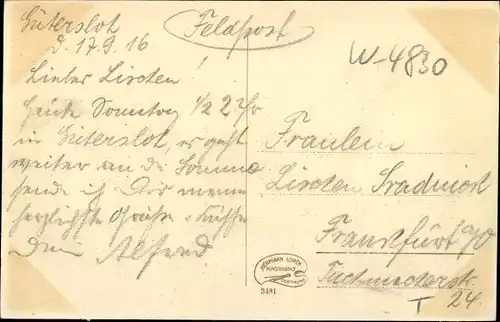 Güterslot
d. 17.9.16
Feldpost
W-4830
Liebes Lischen!
Heute Sonntag 1/2 2 Uhr
in Güterslot, es geht
weiter an die Somme
sende ich Dir meine
herzlichste Grüße + Küsse
Dein Alfred.
Fräulein
Lischen
Frankfurt a/O
24.
HERMANN LORCH
KUNSTANSTALT
DORTMUND
3481
T